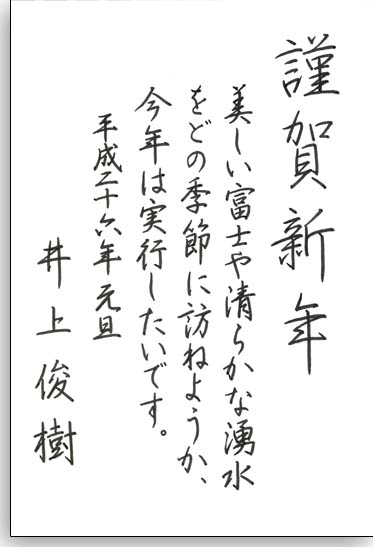 謹賀新年
美しい富士や清らかな湧水
をどの季節に訪ねようか、
今年は実行したいです。
平成二十六年元旦
井上俊樹